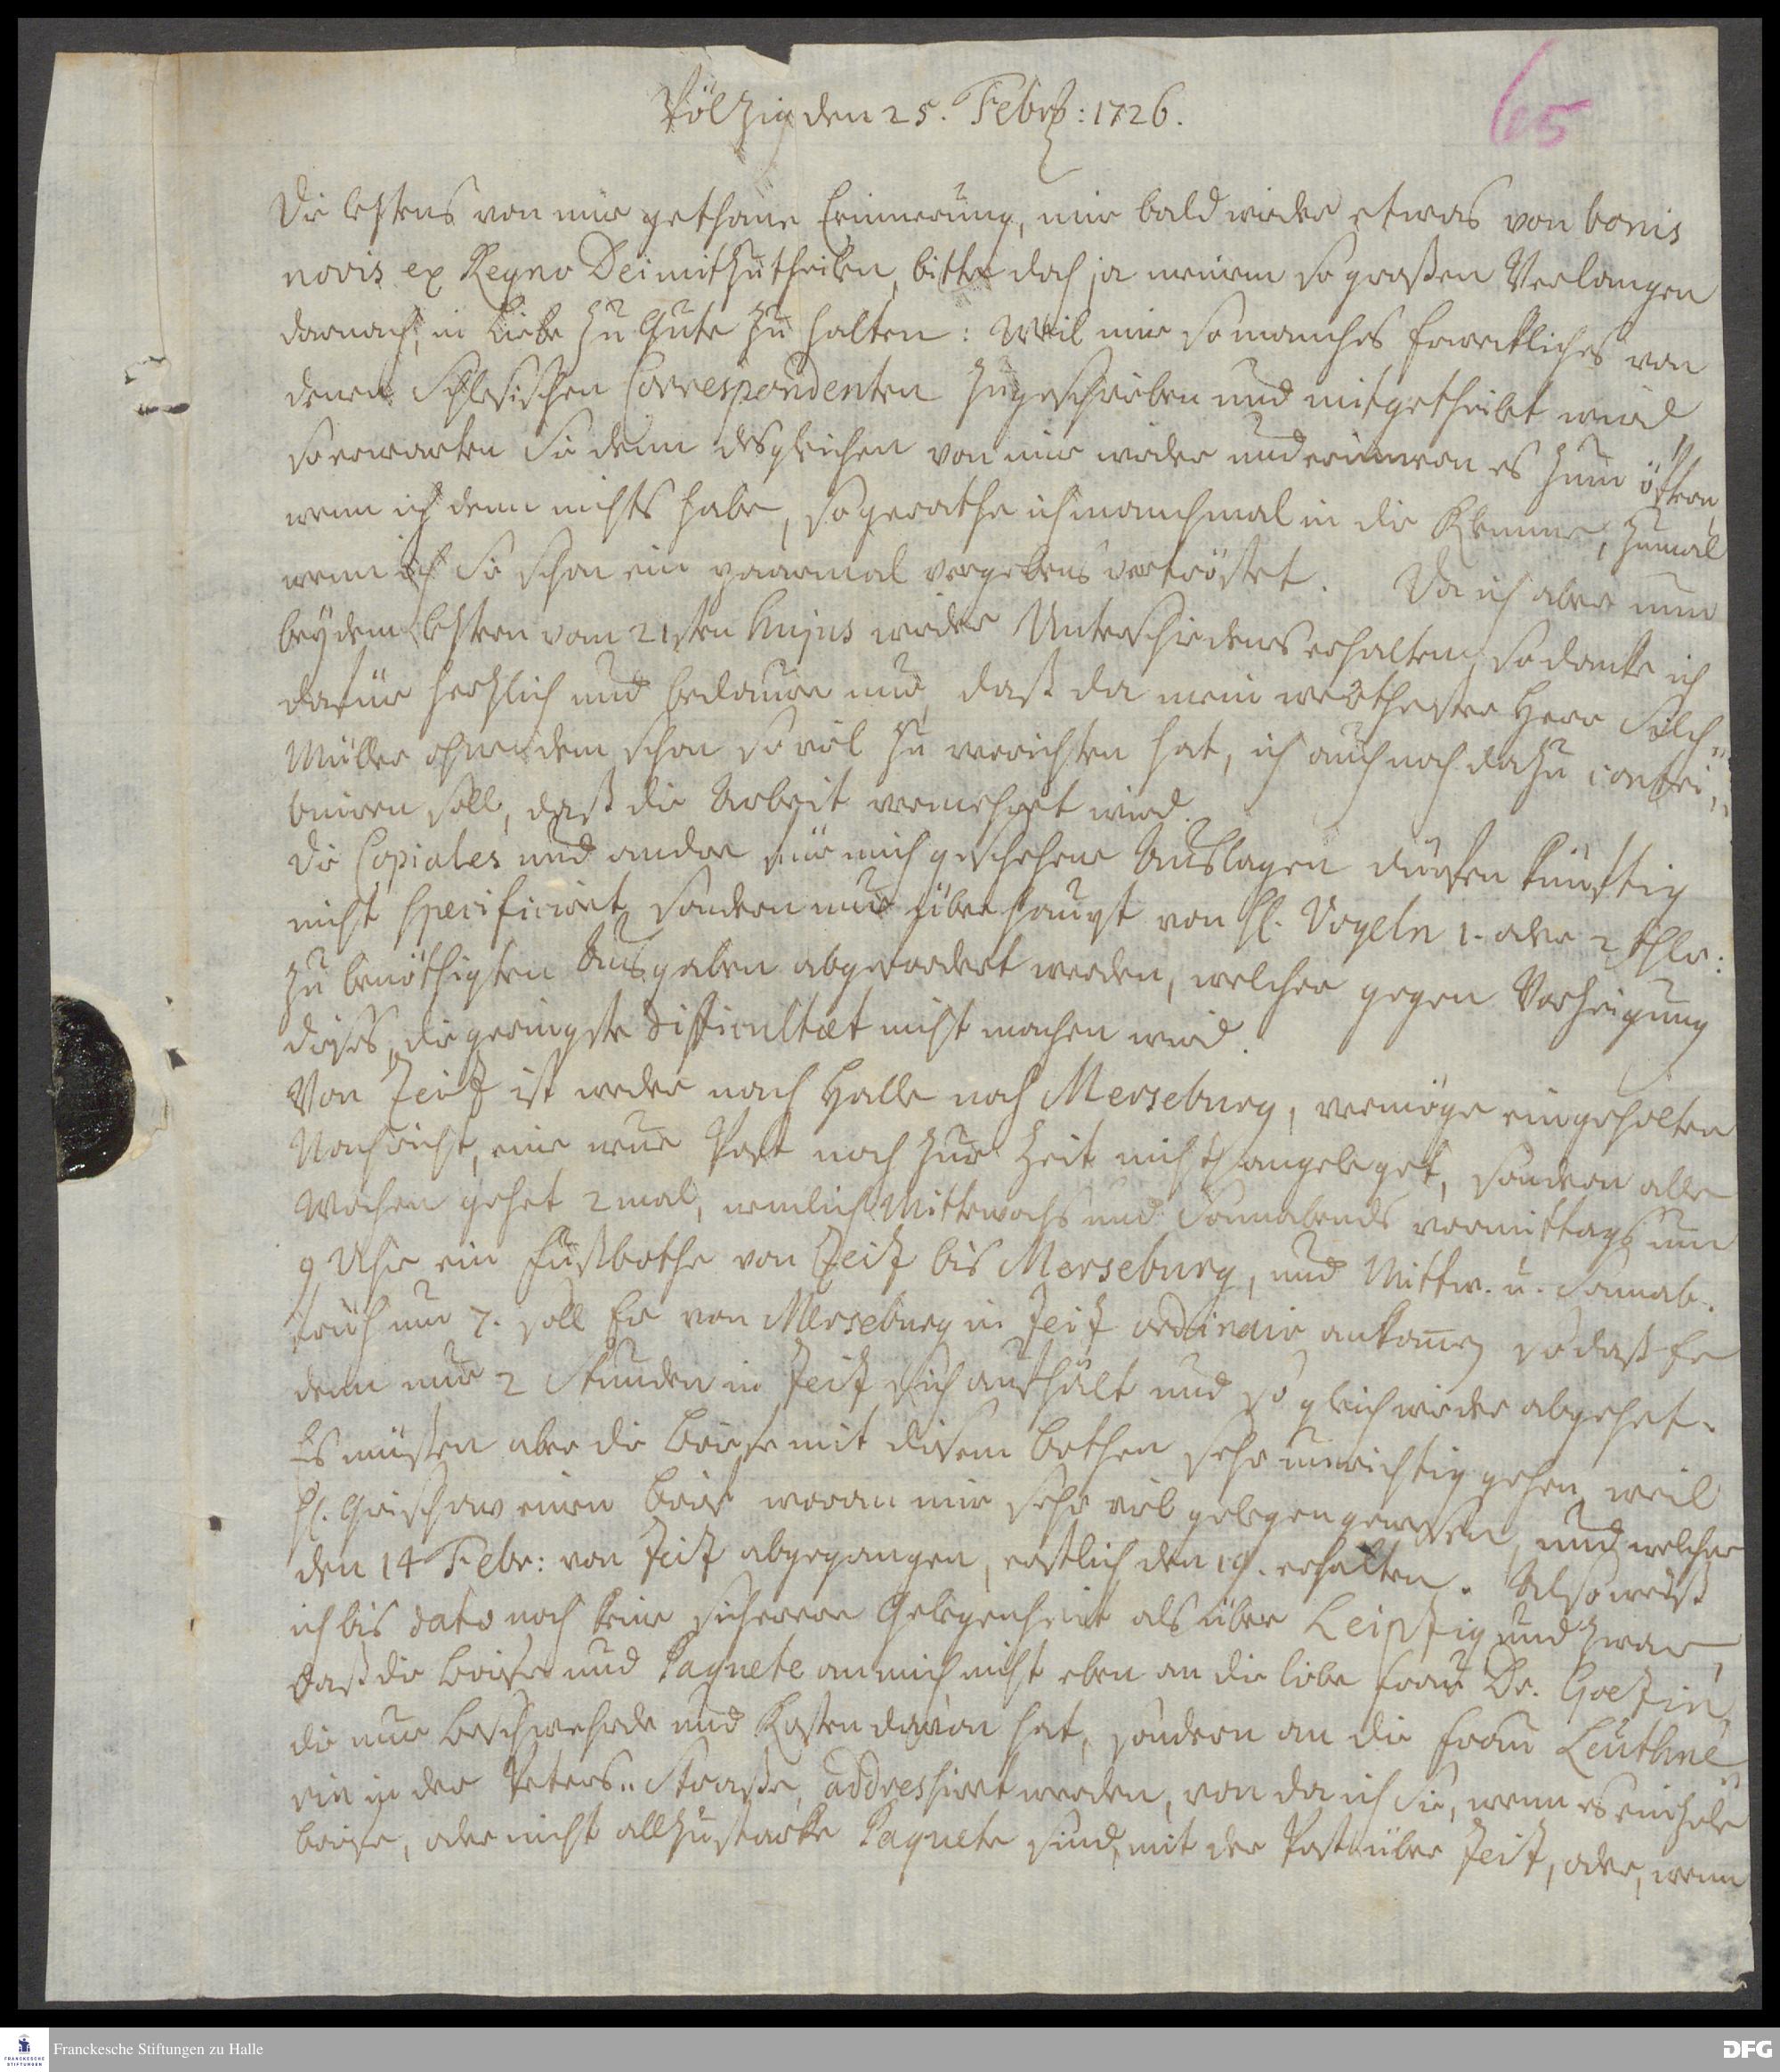 Pöltzig den 25. Febr: 1726.
65
Die letztens von mir gethane Erinnerung, mir bald wieder etwas von bonis
novis ex Regno Dei mitzutheilen, bitte doch ja meinem so großen Verlangen
darnach, in Liebe zu Gute zu halten: Weil mir so manches Erweckliches von
denen Schlesischen Correspondenten zugeschrieben und mitgetheilet wird,
so erwarten Sie denn desgleichen von mir wieder und erinnern es zum öftern,
wenn ich denn nichts habe, so gerathe ich manchmal in die Klemme, zumal
wenn ich Sie schon ein paarmal vergebens vertröstet. Da ich aber nun
bey dem letztern vom 21sten hujus wieder Unterschiedenes erhalten, so danke ich
dafür hertzlich und bedaure nur, daß da mein werthester Herr Silch-
Müller ohne dem schon so viel zu verrichten hat, ich auch noch dazu contri-
buiren soll, daß die Arbeit vermehret wird.
Die Copiales und andre für mich geschehene Auslagen dürfen künftig
nicht specificiret, sondern nur überhaupt von H. Vogeln 1. oder 2 thlr:
zu benöthigten Ausgaben abgefordert werden, welcher gegen Vorzeigung
dieses, die geringste difficultæt nicht machen wird.
Von Zeitz ist weder nach Halle noch Merseburg, vermöge eingeholten
Nachricht, eine neue Post noch zur Zeit nicht angeleget, sondern alle
Wochen gehet 2 mal, nemlich Mittewochs und Sonnabends vormittags um
9 Uhr ein Fußbothe von Zeitz bis Merseburg, und Mittw. u. Sonnab.
früh um 7. soll Er von Merseburg in Zeitz ordinair ankomen, so daß Er
denn nur 2 Stunden in Zeitz sich aufhält und so gleich wieder abgehet.
Es müßen aber die Briefe mit diesem Bothen sehr unrichtig gehen, weil
H. Grischow einen Brief woran mir sehr viel gelegen gewesen, und welcher
den 14 Febr: von Zeitz abgegangen, erstlich den 19. erhalten. Also weiß
ich bis dato noch keine sicherere Gelegenheit als über Leipzig und zwar,
daß die Briefe und Paquete an mich nicht eben an die liebe Frau Dr. Goezin,
die nur Beschwehrde und Kosten davon hat, sondern an die Frau Leuthne-
rin in der Peters-Straße, addressiret werden, von da ich Sie, wenn es einzele
Briefe, oder nicht allzustarke Paquete sind, mit der Post über Zeitz, oder, wenn
Franckesche Stiftungen zu Halle
DFG